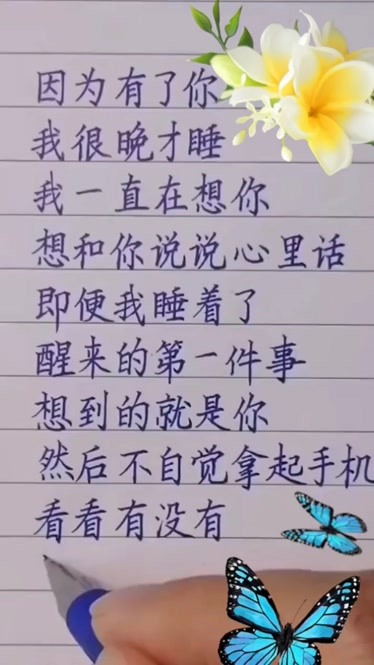 因为有了你
我很晚才睡
我一直在想你
想和你说说心里话
即便我睡着了
醒来的第一件事
想到的就是你
然后不自觉拿起手机
看看有没有